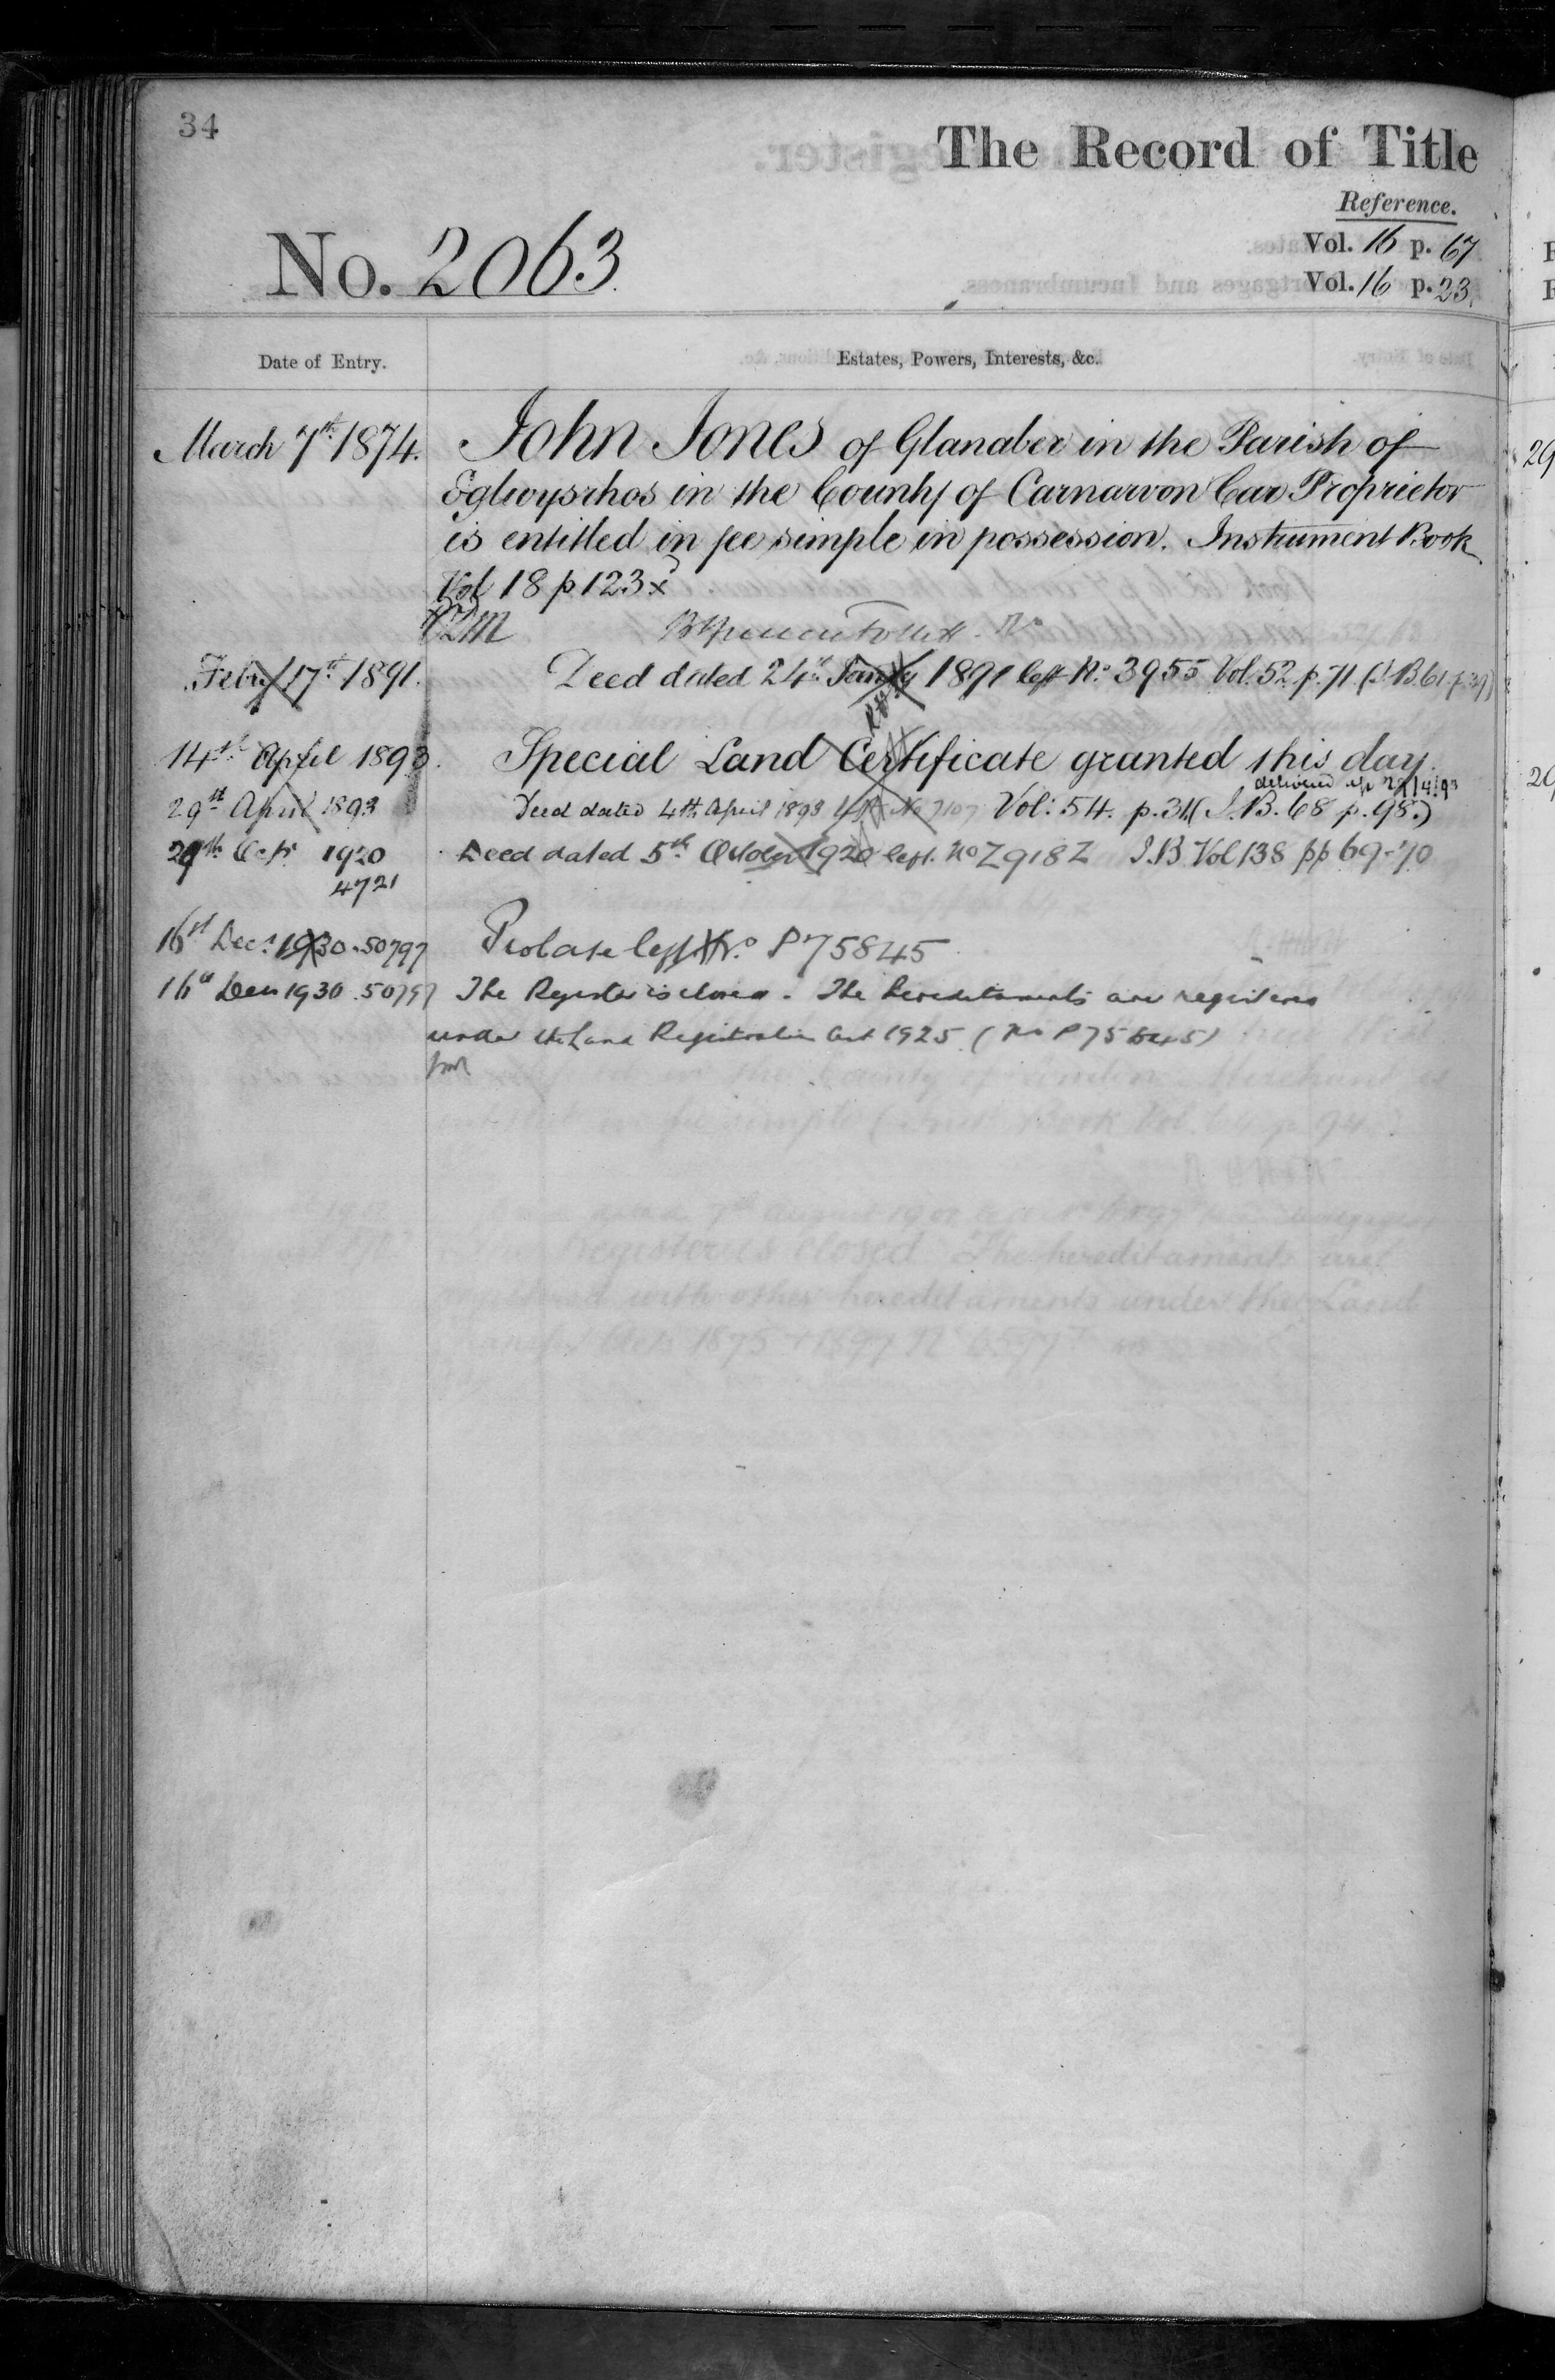 34
The Record of Title
Reference.
No. 2063.
Vol. 16 p. 67
Vol. 16 p. 23.
Date of Entry.
Estates, Powers, Interests, &c.
March 7th 1874. John Jones of Glanaber in the Parish of
Eglwysrhos in the County of Carnarvon Car Proprietor
is entitled in fee simple in possession. Instrument Book
Vol 18 p 123 x
Feby 17th 1891. Deed dated 24th Jany 1891 left No. 3955 Vol. 52 p. 71 (I.B. 61 p.
14th April 1893. Special Land Certificate granted this day.
delivered up
29th April 1893 Deed dated 4th April 1893 left No 7107 Vol: 54. p. 31 (I.B. 68 p. 98.)
29th Octr 1920 Deed dated 5th October 1920 left. No Z918Z I.B Vol 138 pp 69-70
4721
16th Decr 1930. 50797 Probate left No. P75845
16th Decr 1930. 50797 The Register is closed. The hereditaments are registered
under the Land Registration Act 1925. (No P75845)